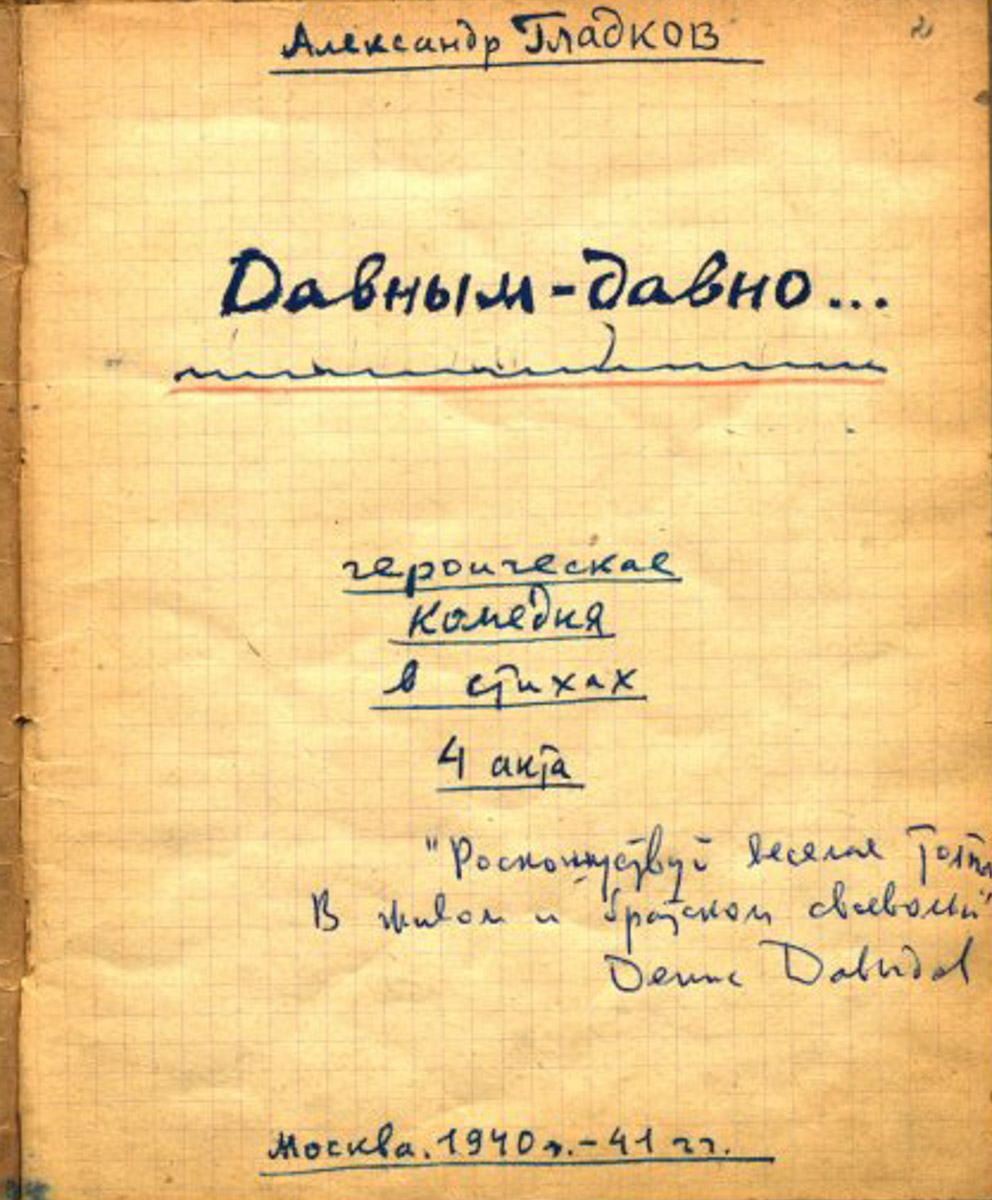 2
Александр Гладков
Давным-давно...
героическая
комедия
в стихах
4 акта
"Роскошствуй веселая толпа
В живом и братском своеволии"
Денис Давыдов
Москва. 1940 г.-41 гг.